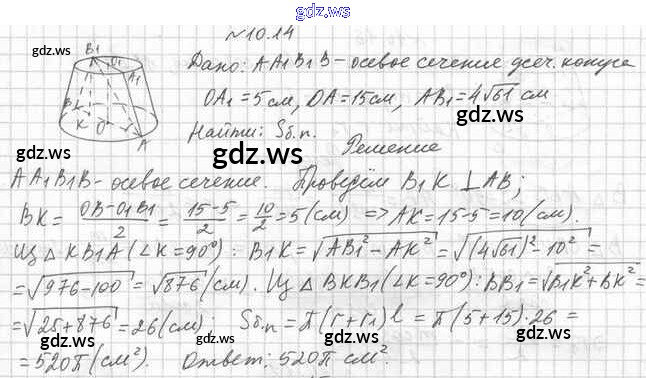 gdz.ws
№10.14
gdz.ws
Дано: AA1B1B - осевое сечение усеч. конуса
OA1 = 5 см, OA = 15 см, AB1 = 4√61 см
gdz.ws
Найти: Sб.п.
gdz.ws
Решение
AA1B1B - осевое сечение. Проведём B1K ⊥ AB;
BK = (OB-O1B1)/2 = (15-5)/2 = 10/2 = 5 (см) => AK = 15-5 = 10 (см).
Из △ KB1A (∠K = 90°): B1K = √(AB1² - AK²) = √((4√61)² - 10²) =
= √(976-100) = √876 (см). Из △ BKB1 (∠K = 90°): BB1 = √(B1K² + BK²) =
= √(25+876) = 26 (см); Sб.п = π(r+r1)l = π(5+15)·26 =
= 520π (см²). Ответ: 520π см².
gdz.ws
gdz.ws
gdz.ws
gdz.ws
gdz.ws